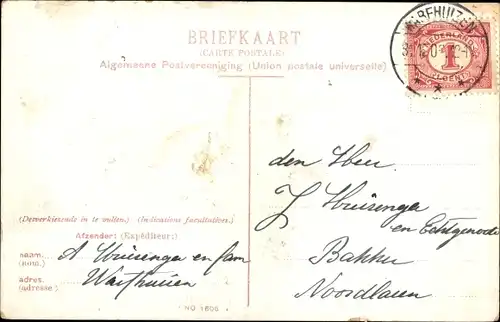 BRIEFKAART
(CARTE POSTALE)
Algemeene Postvereeniging (Union postale universelle)
NEDERLAND
1
CENT
den Heer
J Huizenga
en Echtgenoote
Bakker
Noordlaren
(Deverkiezende in te vullen.) (Indications facultatives.)
Afzender: (Expéditeur:)
naam. A Huizenga en fam
(nom.)
adres. Warfhuizen
(adresse:)
NO 1606